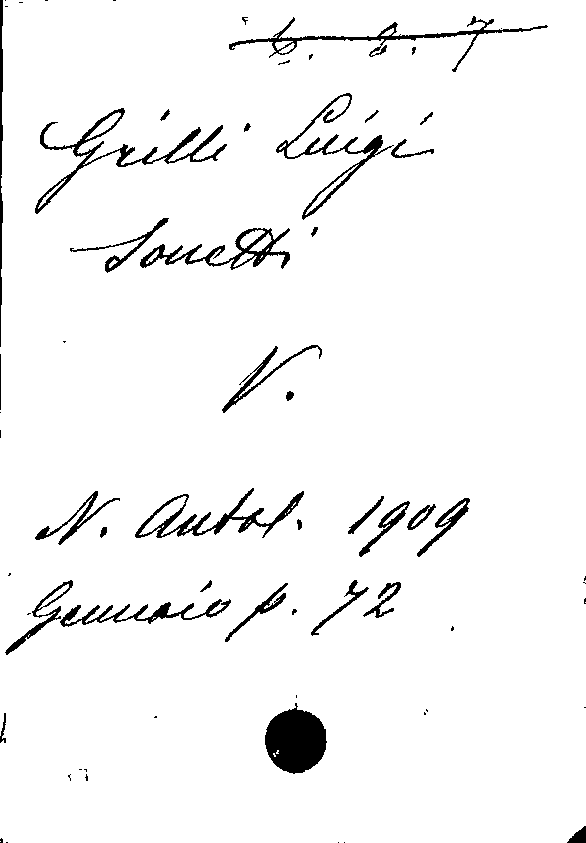 6. 2. 7
Grilli Luigi
Sonetti
V.
N. Antol. 1909
Gennaio p. 72